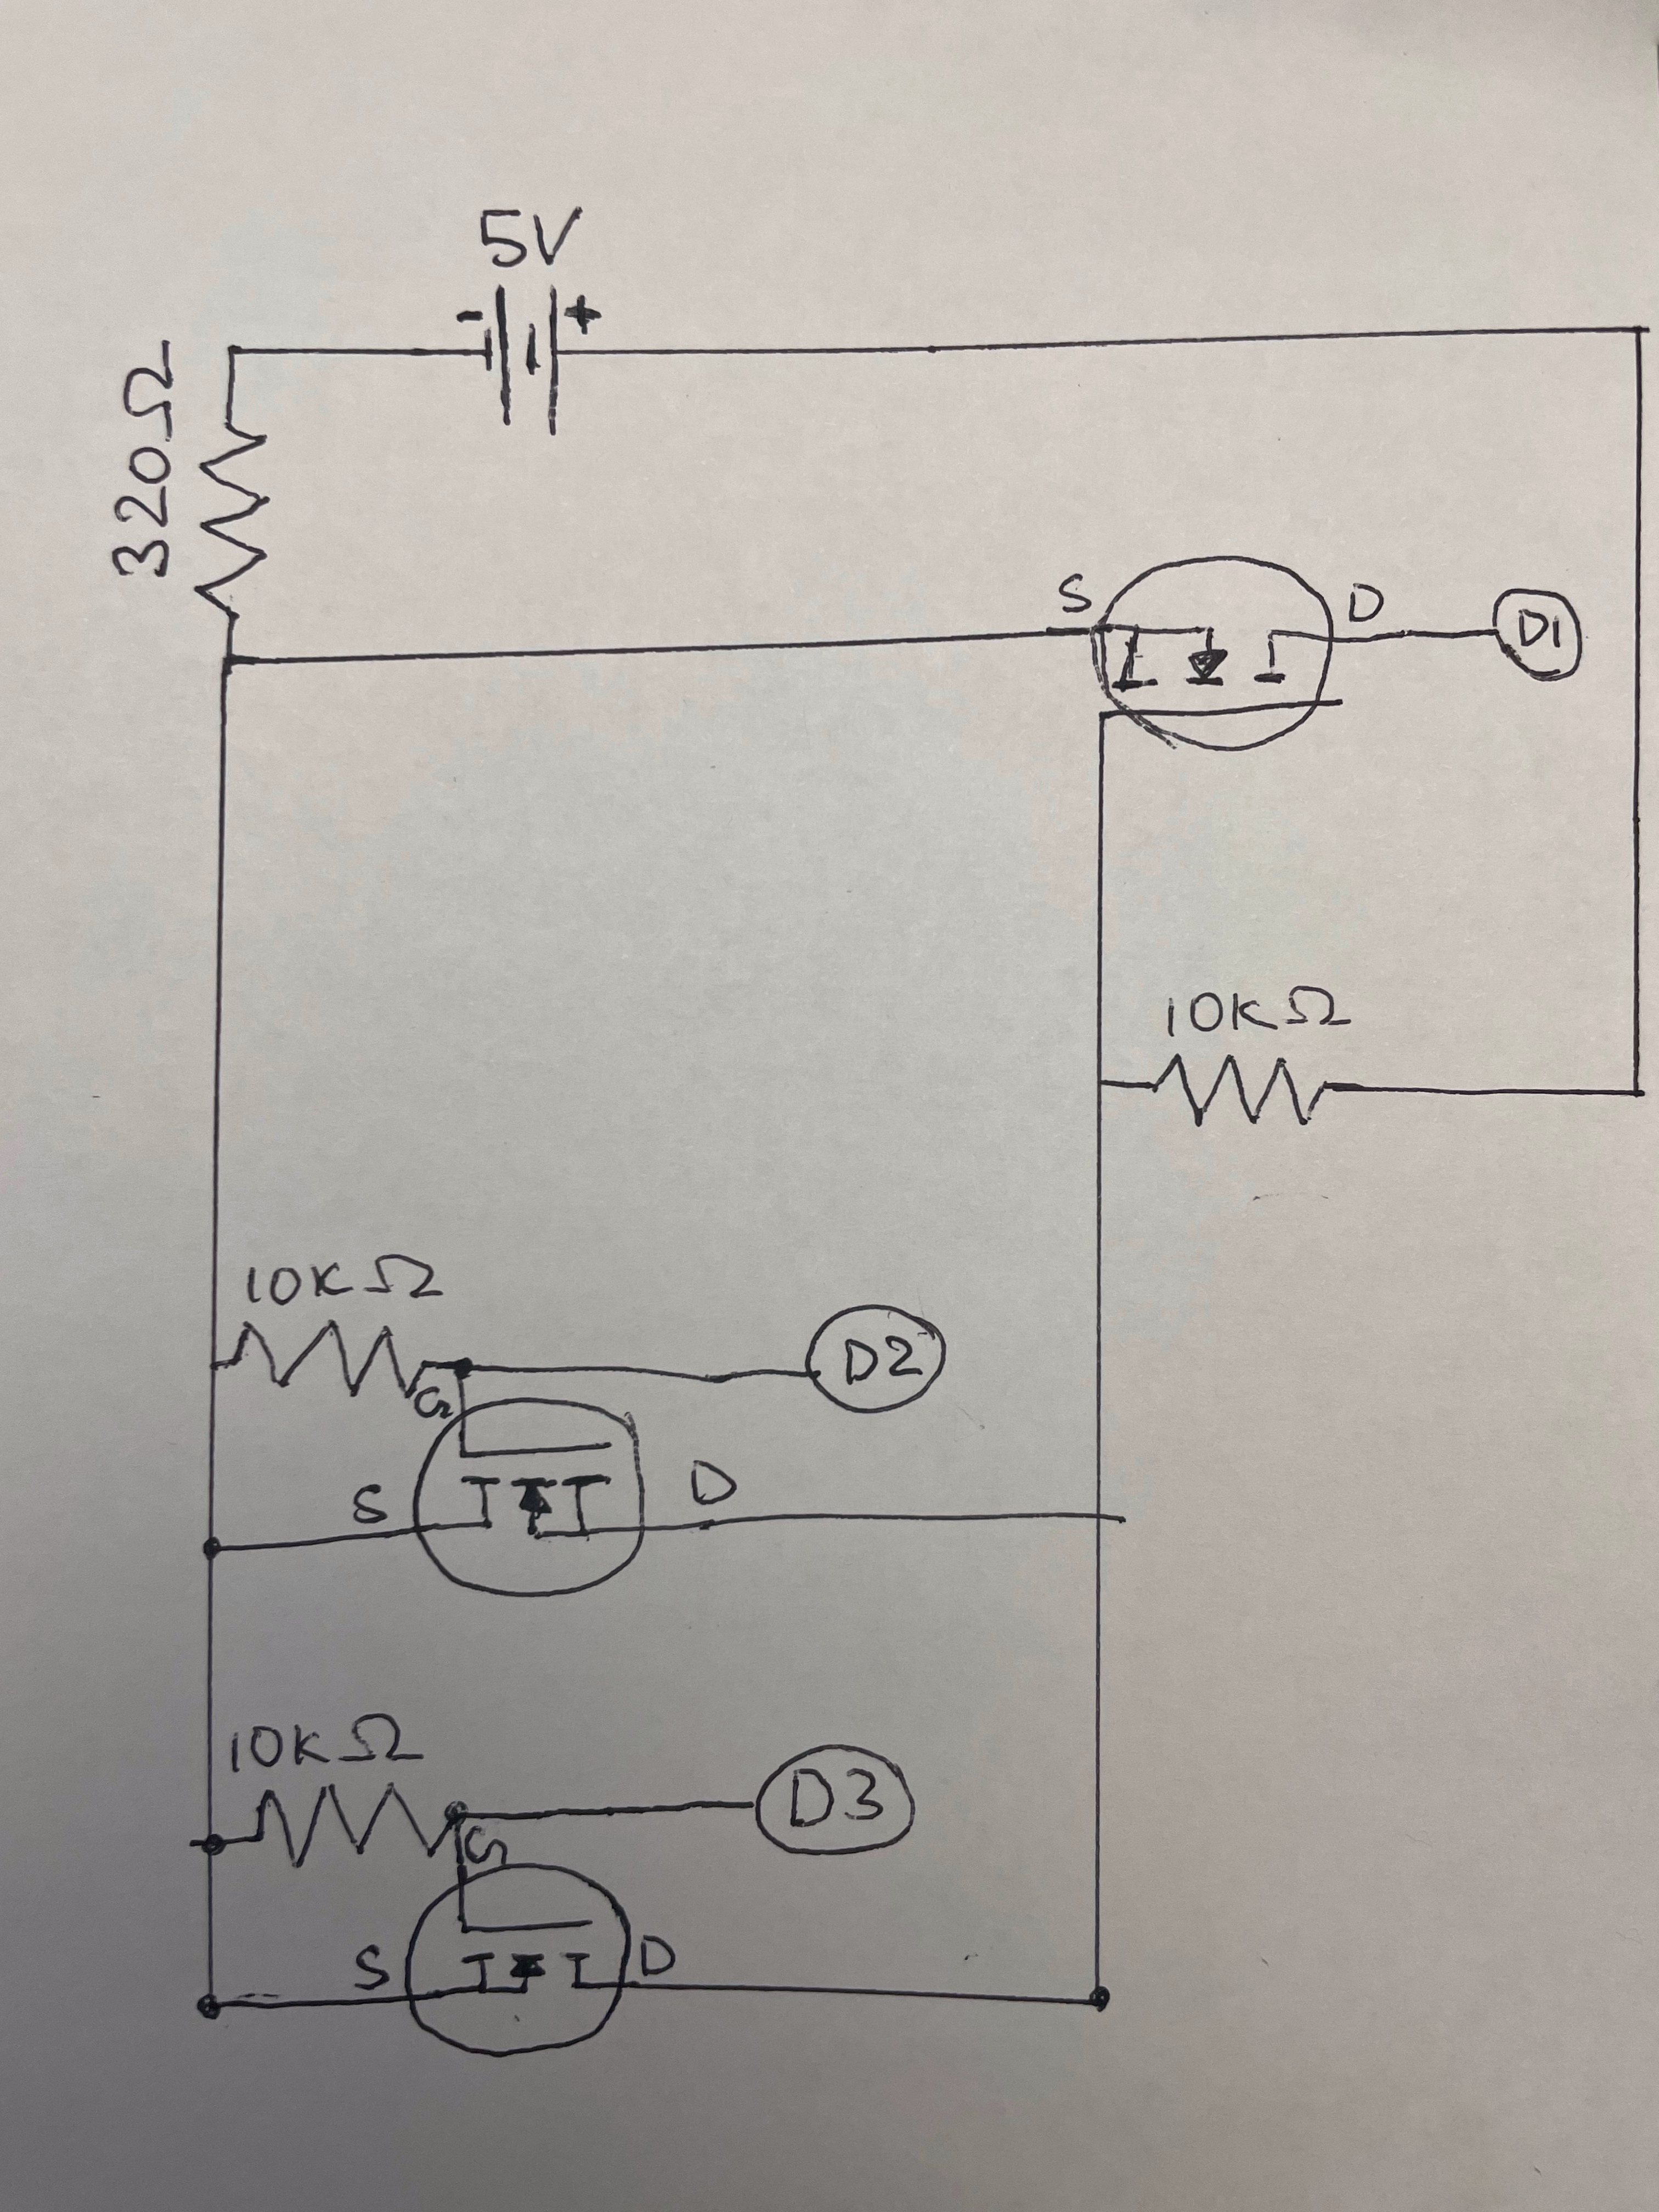 5V
- +
320Ω
S D D1
10KΩ
10KΩ
D2
G
S D
10KΩ
D3
G
S D